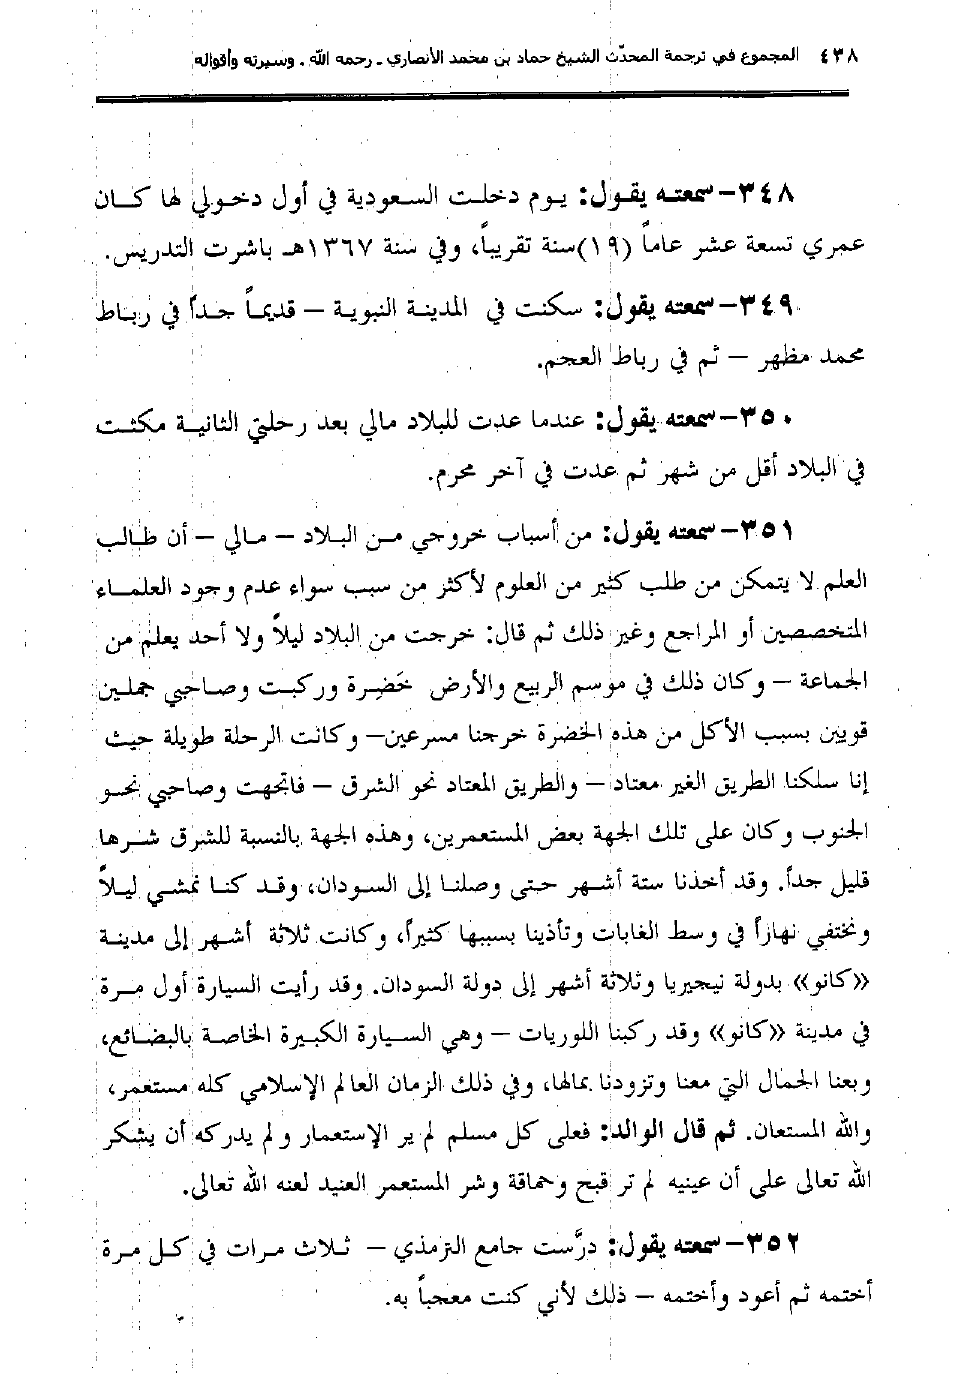 ٤٣٨ المجموع في ترجمة المحدّث الشيخ حماد بن محمد الأنصاري ـ رحمه الله ـ وسيرته وأقواله
٣٤٨– سمعته يقول: يوم دخلت السعودية في أول دخولي لها كان
عمري تسعة عشر عاماً (١٩) سنة تقريباً، وفي سنة ١٣٦٧هـ باشرت التدريس.
٣٤٩– سمعته يقول: سكنت في المدينة النبوية – قديماً جداً في رباط
محمد مظهر – ثم في رباط العجم.
٣٥٠– سمعته يقول: عندما عدت للبلاد مالي بعد رحلتي الثانية مكثت
في البلاد أقل من شهر ثم عدت في آخر محرم.
٣٥١– سمعته يقول: من أسباب خروجي من البلاد – مالي – أن طالب
العلم لا يتمكن من طلب كثير من العلوم لأكثر من سبب سواء عدم وجود العلماء
المتخصصين أو المراجع وغير ذلك ثم قال: خرجت من البلاد ليلاً ولا أحد يعلم من
الجماعة – وكان ذلك في موسم الربيع والأرض خَضِرة وركبت وصاحبي جملين
قويين بسبب الأكل من هذه الخضرة خرجنا مسرعين– وكانت الرحلة طويلة حيث
إنا سلكنا الطريق الغير معتاد – والطريق المعتاد نحو الشرق – فاتجهت وصاحبي نحو
الجنوب وكان على تلك الجهة بعض المستعمرين، وهذه الجهة بالنسبة للشرق شرها
قليل جداً. وقد أخذنا ستة أشهر حتى وصلنا إلى السودان، وقد كنا نمشي ليلاً
ونختفي نهاراً في وسط الغابات وتأذينا بسببها كثيراً، وكانت ثلاثة أشهر إلى مدينة
«كانو» بدولة نيجيريا وثلاثة أشهر إلى دولة السودان. وقد رأيت السيارة أول مرة
في مدينة «كانو» وقد ركبنا اللوريات – وهي السيارة الكبيرة الخاصة بالبضائع،
وبعنا الجمال التي معنا وتزودنا بمالها، وفي ذلك الزمان العالم الإسلامي كله مستعمر،
والله المستعان. ثم قال الوالد: فعلى كل مسلم لم ير الإستعمار ولم يدركه أن يشكر
الله تعالى على أن عينيه لم تر قبح وحماقة وشر المستعمر العنيد لعنه الله تعالى.
٣٥٢– سمعته يقول: درَّست جامع الترمذي – ثلاث مرات في كل مرة
أختمه ثم أعود وأختمه – ذلك لأني كنت معجباً به.